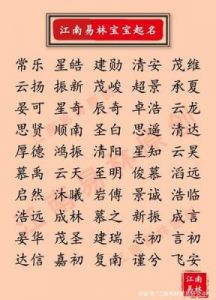 江南易林宝宝起名
常乐 星皓 建勋 清安 茂维
云扬 振新 茂竣 超景 承夏
晏可 星奇 辰奇 卓浩 云龙
思贤 顺南 圣白 思遥 清达
厚德 鸿振 清阳 星知 昊云
慕禹 云天 至明 俊慕 云景
启然 天曦 岩傅 景诚 浩临
浩远 成林 慕之 新振 成言
晏华 茂圣 建瑞 志初 言初
达信 嘉初 复南 谨兮 飞安
江南
易林